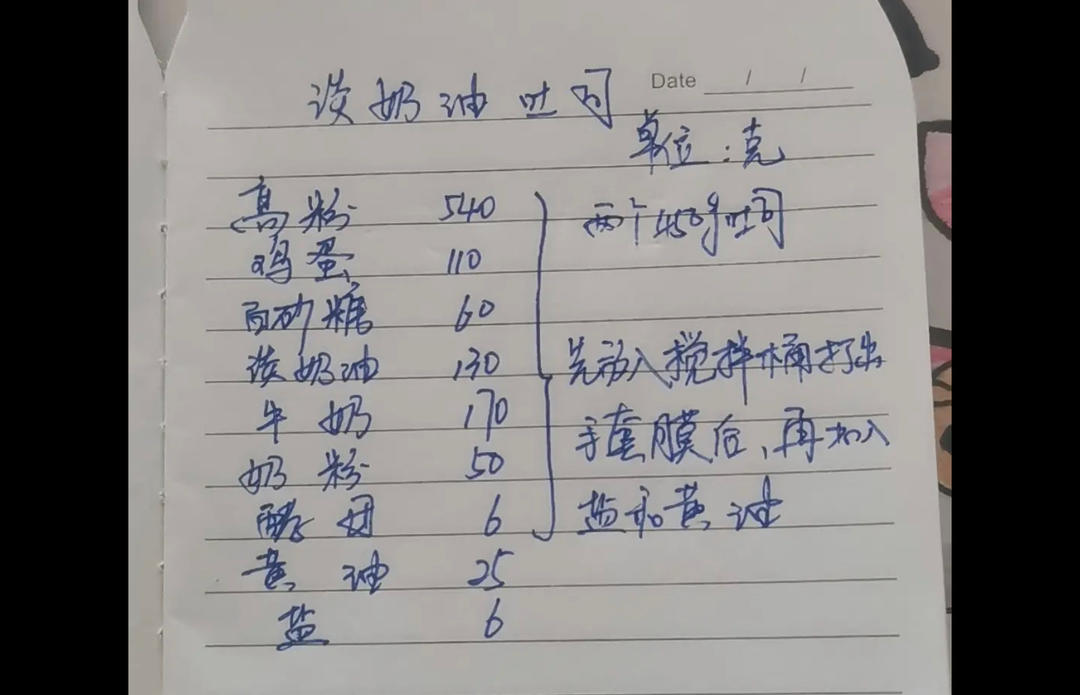 Date / /
淡奶油吐司
单位：克
高粉 540 两个450g吐司
鸡蛋 110
白砂糖 60
淡奶油 130 先放入搅拌桶打出
牛奶 170 手套膜后，再加入
奶粉 50 盐和黄油
酵母 6
黄油 25
盐 6